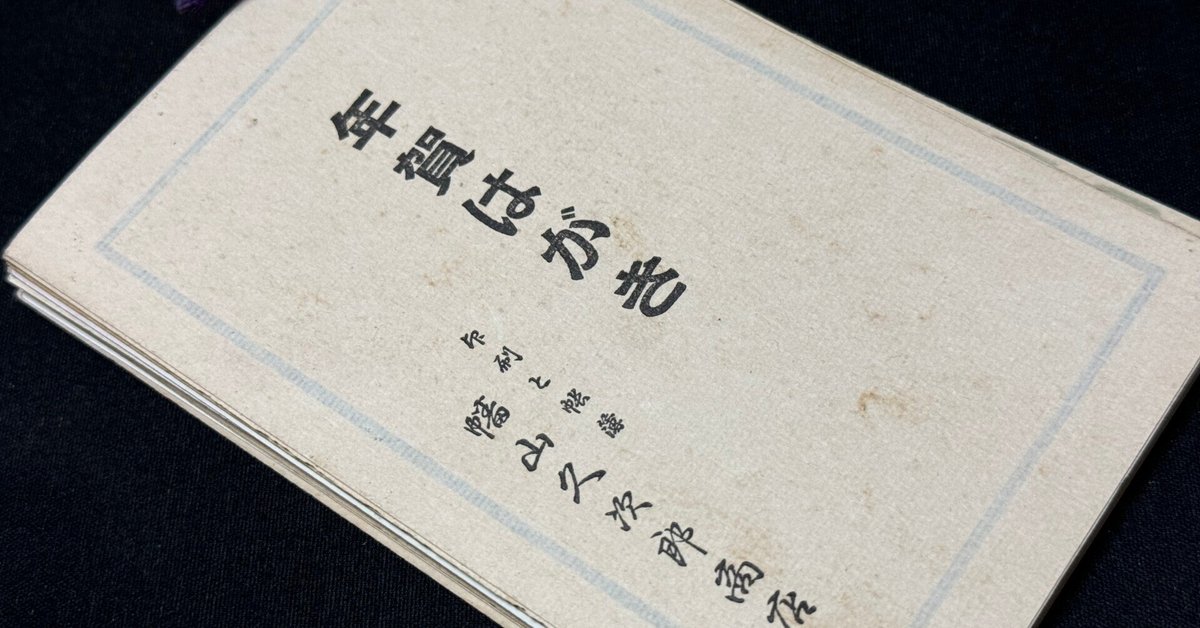 年賀はがき
印刷と帳簿
幡山久次郎商店